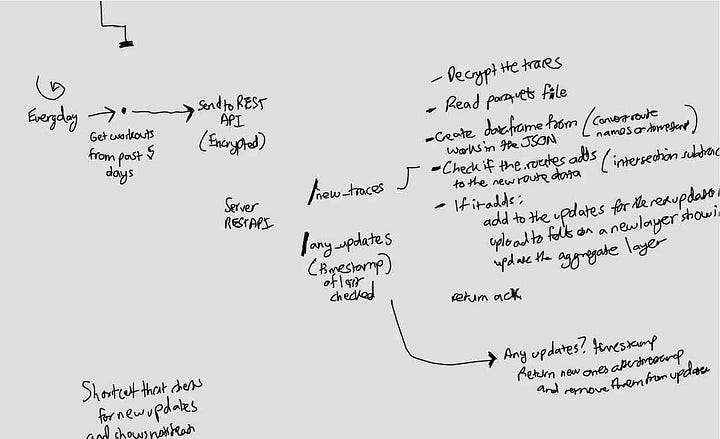 Everyday
Get workouts
from past 5
days
Send to REST
API
(Encrypted)
Server
REST API
/new_traces
/any_updates
(timestamp)
of last
checked
- Decrypt the traces
- Read parquets file
- Create dataframe from (Convert route
works in the JSON names or timestamp)
- Check if the routes adds (intersection subtrac
to the new route data
- If it adds:
add to the updates for the next update
upload to felt on a new layer showi
update the aggregate layer
return ack
Any updates? timestamp
Return new ones after timestamp
and remove them from updates
Shortcut that checks
for new updates
and shows